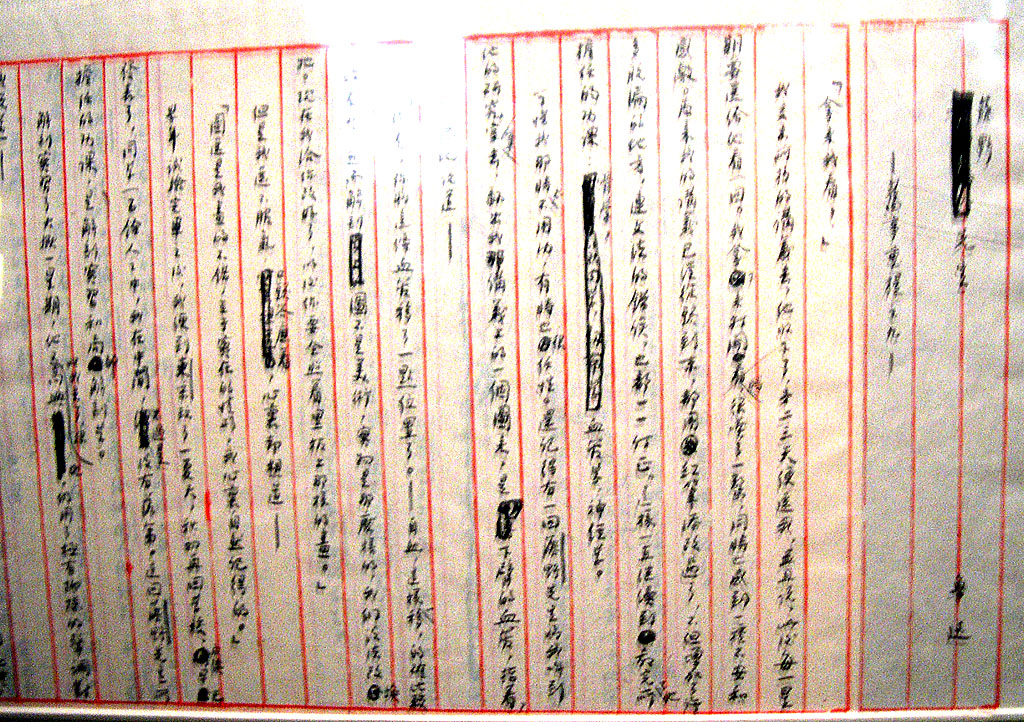 藤野先生。 魯迅
——舊事重提之九——
「拿來我看。」
我交出所抄的講義去,他收下了,第二三天便還我,並且說,此後每一星
期要送給他看一回。我拿下來打開看時,很吃了一驚,同時也感到一種不安和
感激。原來我的講義已經從頭到末,都用紅筆添改過了,不但增加了許
多脫漏的地方,連文法的錯誤,也都一一訂正。這樣一直繼續到教完了他所
擔任的功課:骨學,血管學,神經學。
可惜我那時太不用功,有時也很任性。還記得有一回藤野先生將我叫到
他的研究室裏去,翻出我那講義上的一個圖來,是下臂的血管,指着,
說道——
你將這條血管移了一點位置了。——自然,這樣一移,的確比較
然而解剖圖不是美術,實物是那麼樣的,我們沒法改換
它。現在我給你改好了,以後你要全照着黑板上那樣的畫。」
但是我還不服氣,口頭答應着,心裏卻想道——
「圖還是我畫的不錯;至於實在的情形,我心裏自然記得的。」
學年試驗完畢之後,我便到東京玩了一夏天,秋初再回學校,
發表了,同學一百餘人之中,我在中間,不過是沒有落第。這回藤野先生所
擔任的功課,是解剖實習和局部解剖學。
解剖實習了大概一星期,他又叫我去了,很高興地,仍用了極有抑揚的聲調對
我說道——